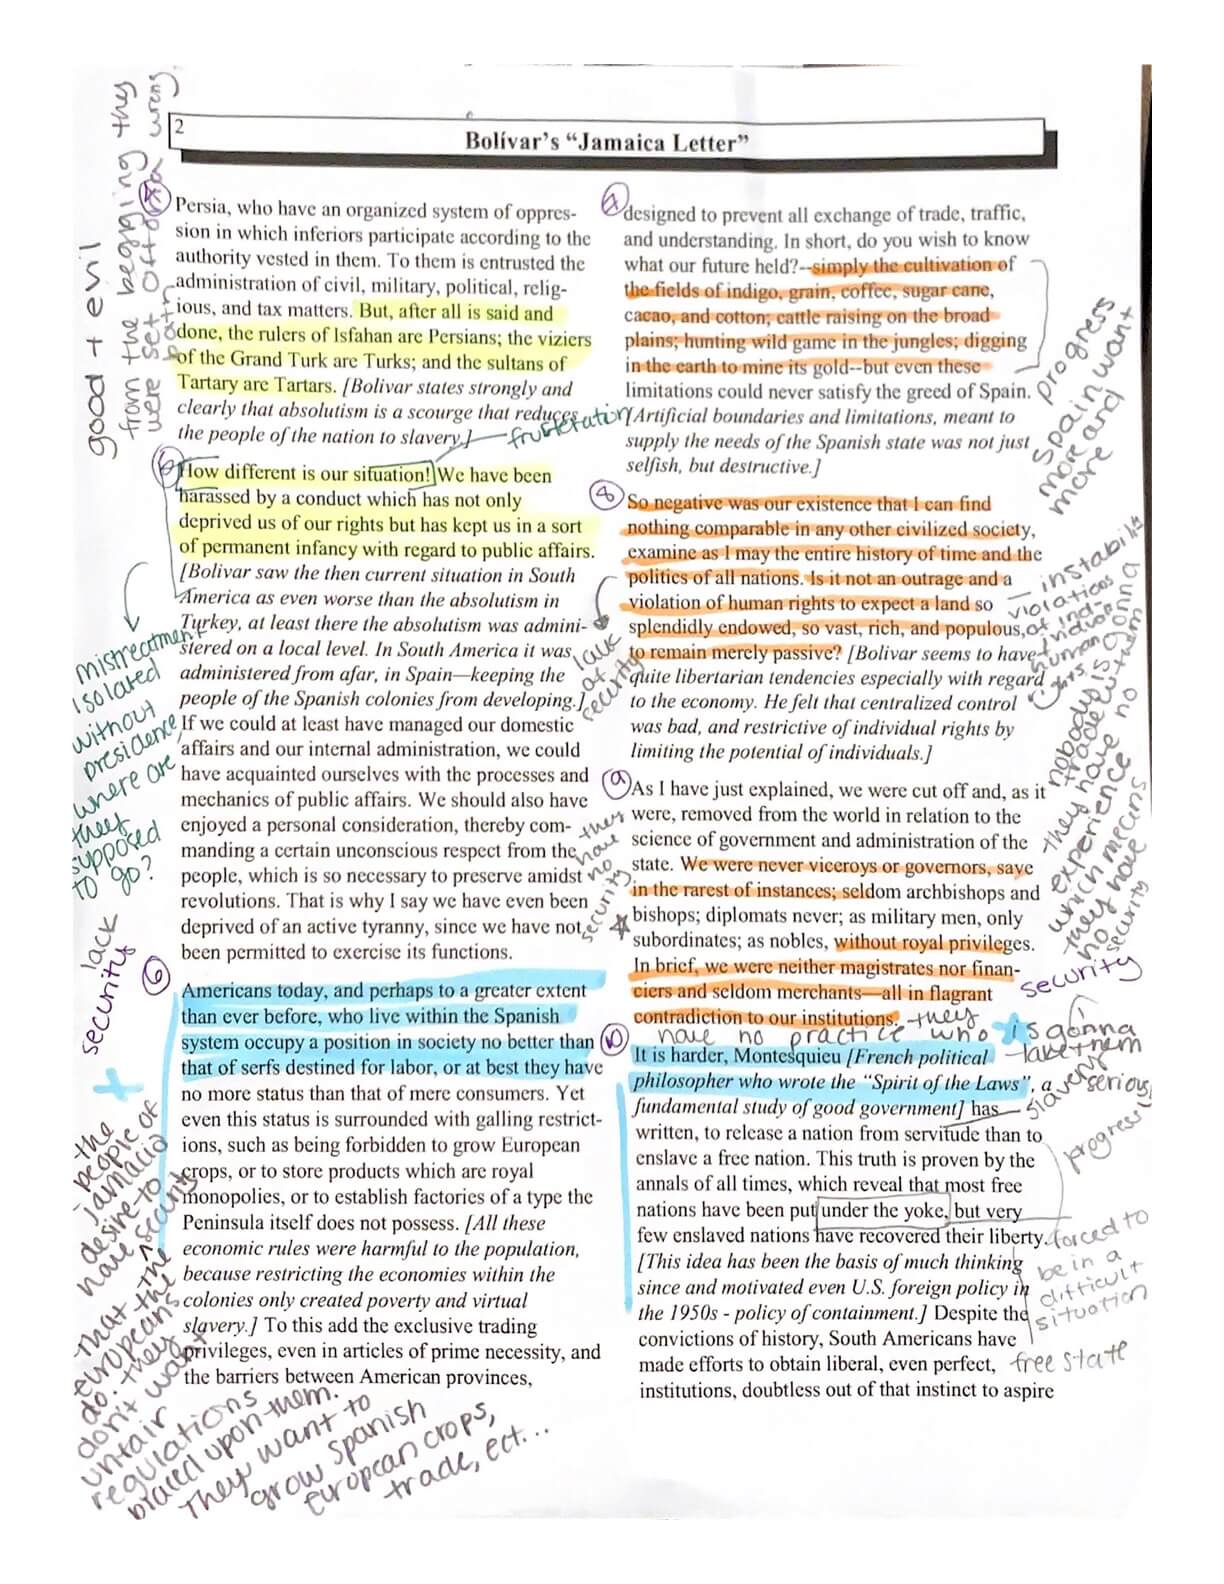 2
Bolívar's “Jamaica Letter”
good + evil
from the begging they
were set off on a wrong
foot
Persia, who have an organized system of oppres-
sion in which inferiors participate according to the
authority vested in them. To them is entrusted the
administration of civil, military, political, relig-
ious, and tax matters. But, after all is said and
done, the rulers of Isfahan are Persians; the viziers
of the Grand Turk are Turks; and the sultans of
Tartary are Tartars. [Bolivar states strongly and
clearly that absolutism is a scourge that reduces
the people of the nation to slavery.]
frusteration
How different is our situation! We have been
harassed by a conduct which has not only
deprived us of our rights but has kept us in a sort
of permanent infancy with regard to public affairs.
[Bolivar saw the then current situation in South
America as even worse than the absolutism in
Turkey, at least there the absolutism was admini-
stered on a local level. In South America it was
administered from afar, in Spain—keeping the
people of the Spanish colonies from developing.]
If we could at least have managed our domestic
affairs and our internal administration, we could
have acquainted ourselves with the processes and
mechanics of public affairs. We should also have
enjoyed a personal consideration, thereby com-
manding a certain unconscious respect from the
people, which is so necessary to preserve amidst
revolutions. That is why I say we have even been
deprived of an active tyranny, since we have not
been permitted to exercise its functions.
mistreatment
isolated
without
presidence,
where are
they
supposed
to go?
lack
security
6
Americans today, and perhaps to a greater extent
than ever before, who live within the Spanish
system occupy a position in society no better than
that of serfs destined for labor, or at best they have
no more status than that of mere consumers. Yet
even this status is surrounded with galling restrict-
ions, such as being forbidden to grow European
crops, or to store products which are royal
monopolies, or to establish factories of a type the
Peninsula itself does not possess. [All these
economic rules were harmful to the population,
because restricting the economies within the
colonies only created poverty and virtual
slavery.] To this add the exclusive trading
privileges, even in articles of prime necessity, and
the barriers between American provinces,
the
people of
Jamacia
desire to
have security
that the
europeans
do. they
don't want
unfair
regulations
placed upon them.
They want to
grow spanish
european crops,
trade, ect...
designed to prevent all exchange of trade, traffic,
and understanding. In short, do you wish to know
what our future held?--simply the cultivation of
the fields of indigo, grain, coffee, sugar cane,
cacao, and cotton; cattle raising on the broad
plains; hunting wild game in the jungles; digging
in the earth to mine its gold--but even these
limitations could never satisfy the greed of Spain.
[Artificial boundaries and limitations, meant to
supply the needs of the Spanish state was not just
selfish, but destructive.]
progress
spain want
more and
more
8
So negative was our existence that I can find
nothing comparable in any other civilized society,
examine as I may the entire history of time and the
politics of all nations. Is it not an outrage and a
violation of human rights to expect a land so
splendidly endowed, so vast, rich, and populous,
to remain merely passive? [Bolivar seems to have
quite libertarian tendencies especially with regard
to the economy. He felt that centralized control
was bad, and restrictive of individual rights by
limiting the potential of individuals.]
lack
of
security
violations
human
rights
9
As I have just explained, we were cut off and, as it
were, removed from the world in relation to the
science of government and administration of the
state. We were never viceroys or governors, save
in the rarest of instances; seldom archbishops and
bishops; diplomats never; as military men, only
subordinates; as nobles, without royal privileges.
In brief, we were neither magistrates nor finan-
ciers and seldom merchants—all in flagrant
contradiction to our institutions.
they
have
no
security
nobody is gonna
trade with them
they have no
experience
which means
they have
no
security
security
they
have no practice who is gonna
take them
serious
10
It is harder, Montesquieu [French political
philosopher who wrote the “Spirit of the Laws”, a
fundamental study of good government] has
written, to release a nation from servitude than to
enslave a free nation. This truth is proven by the
annals of all times, which reveal that most free
nations have been put under the yoke, but very
few enslaved nations have recovered their liberty.
[This idea has been the basis of much thinking
since and motivated even U.S. foreign policy in
the 1950s - policy of containment.] Despite the
convictions of history, South Americans have
made efforts to obtain liberal, even perfect,
institutions, doubtless out of that instinct to aspire
slavery
progress
forced to
be in a
difficult
situation
free state